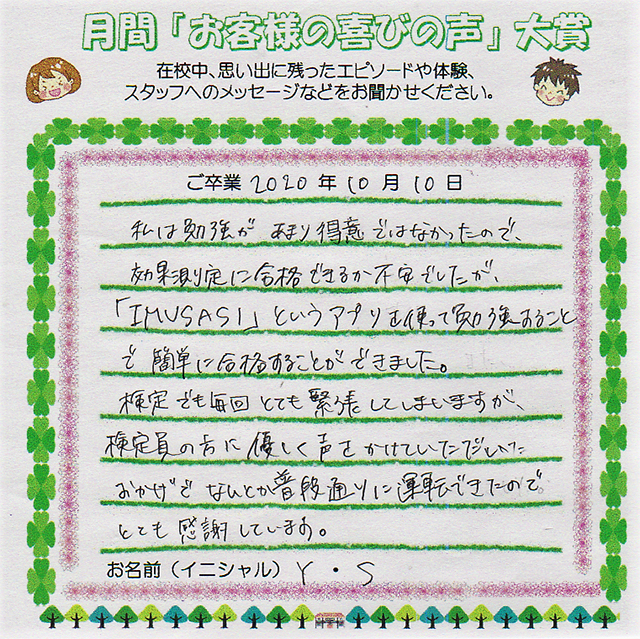 月間「お客様の喜びの声」大賞
在校中、思い出に残ったエピソードや体験、
スタッフへのメッセージなどをお聞かせください。
ご卒業 2020 年 10 月 10 日
私は勉強が あまり得意ではなかったので、
効果測定に合格できるか不安でしたが、
「IMUSASI」というアプリを使って勉強すること
で 簡単に合格することができました。
検定でも毎回 とても緊張してしまいますが、
検定員の方に優しく声をかけていただいた
おかげで なんとか普段通りに運転できたので
とても感謝しています。
お名前（イニシャル） Y ・ S